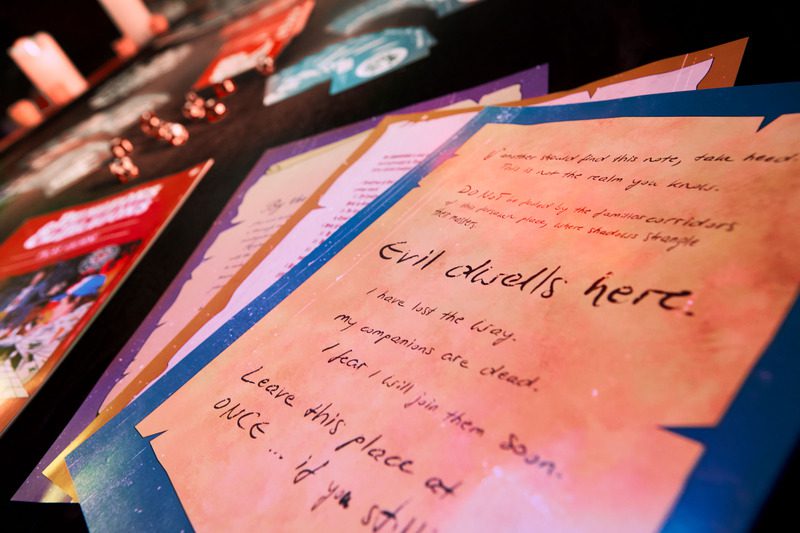 If another should find this note, take heed.
This is not the realm you know.
DO NOT be fooled by the familiar corridors
of this poisoned place, where shadows strangle
their masters.
Evil dwells here.
I have lost the way.
my companions are dead.
I fear I will join them soon.
Leave this place at
ONCE... if you still